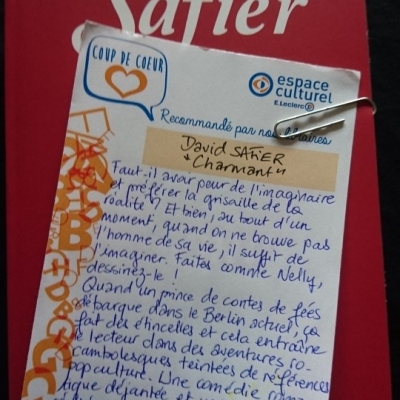 Safier
COUP DE COEUR
espace
culturel
E.Leclerc
Recommandé par nos libraires
David SAFIER
"Charmant"
Faut-il avoir peur de l'imaginaire
et préférer la grisaille de la
réalité? Et bien, au bout d'un
moment, quand on ne trouve pas
l'homme de sa vie, il suffit de
l'imaginer. Faites comme Nelly,
dessinez-le !
Quand un prince de contes de fées
débarque dans le Berlin actuel, ça
fait des étincelles et cela entraîne
le lecteur dans des aventures ro-
cambolesques teintées de références
pop culture. Une comédie
tique déjantée et